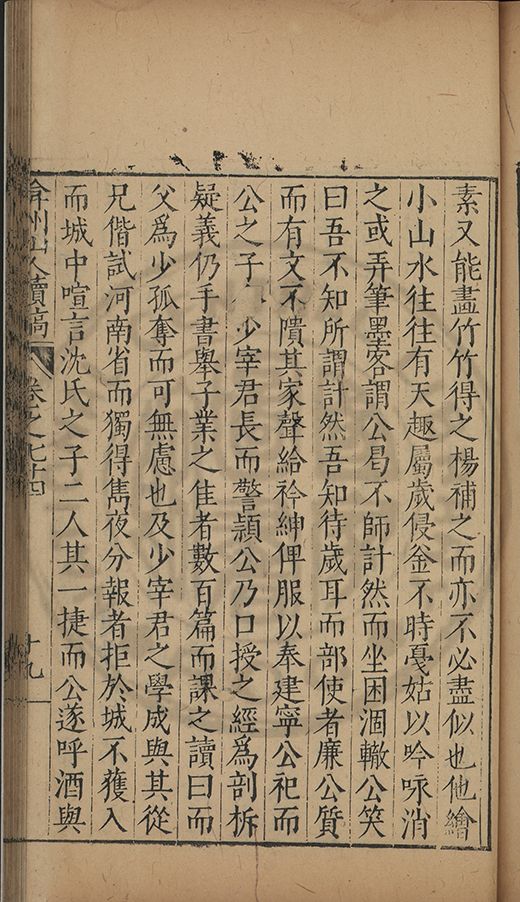 素又能畫竹竹得之楊補之而亦不必盡似也他繪
小山水往往有天趣屬歲侵釡不時戞姑以吟咏消
之或弄筆墨客謂公曷不師計然而坐困涸轍公笑
曰吾不知所謂計然吾知待歲耳而部使者廉公質
而有文不隤其家聲給衿紳俾服以奉建寧公祀而
公之子少宰君長而警頴公乃口授之經爲剖柝
疑義仍手書舉子業之佳者數百篇而課之讀曰而
父爲少孤奪而可無慮也及少宰君之學成與其從
兄偕試河南省而獨得雋夜分報者拒於城不獲入
而城中喧言沈氏之子二人其一捷而公遂呼酒與
弇州山人續稿 卷之七十四 十九